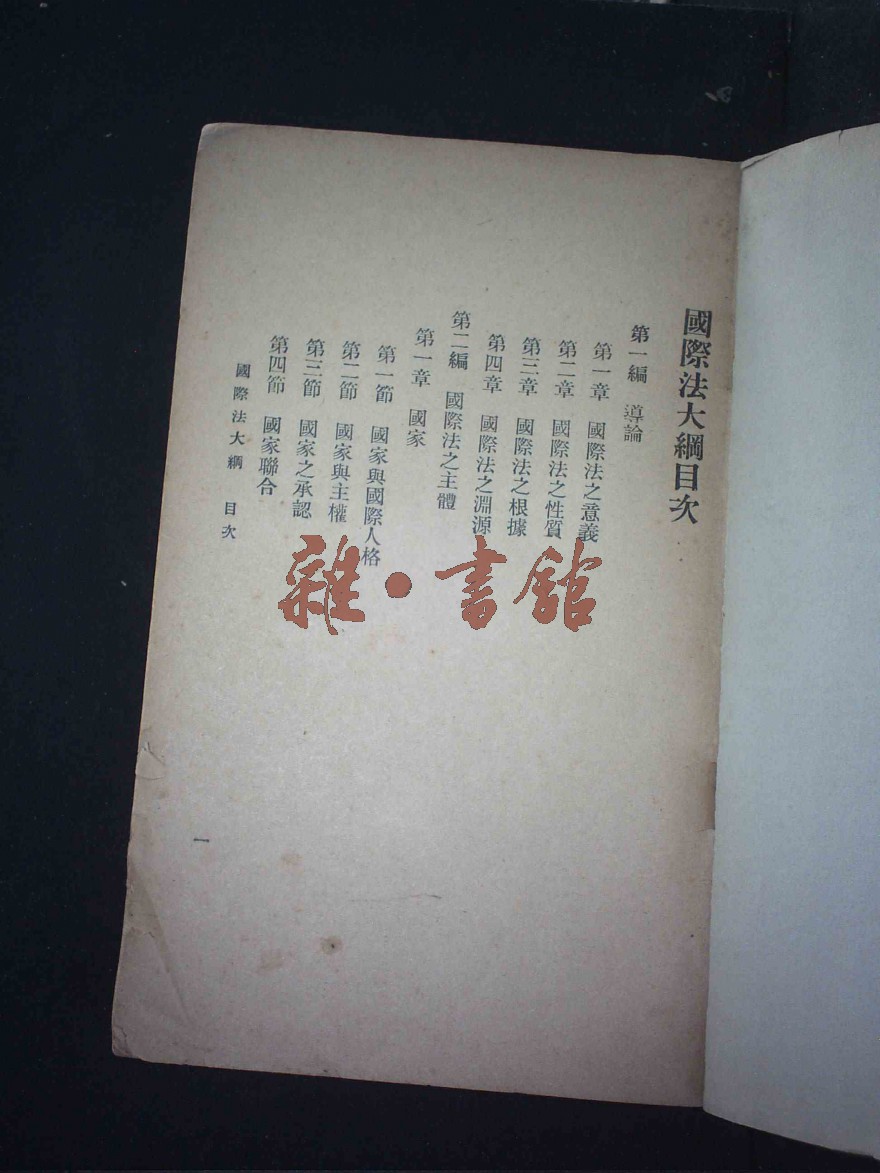 國際法大綱目次
第一編 導論
第一章 國際法之意義
第二章 國際法之性質
第三章 國際法之根據
第四章 國際法之淵源
第二編 國際法之主體
第一章 國家
第一節 國家與國際人格
第二節 國家與主權
第三節 國家之承認
第四節 國家聯合
國際法大綱 目次
一
雜·書館